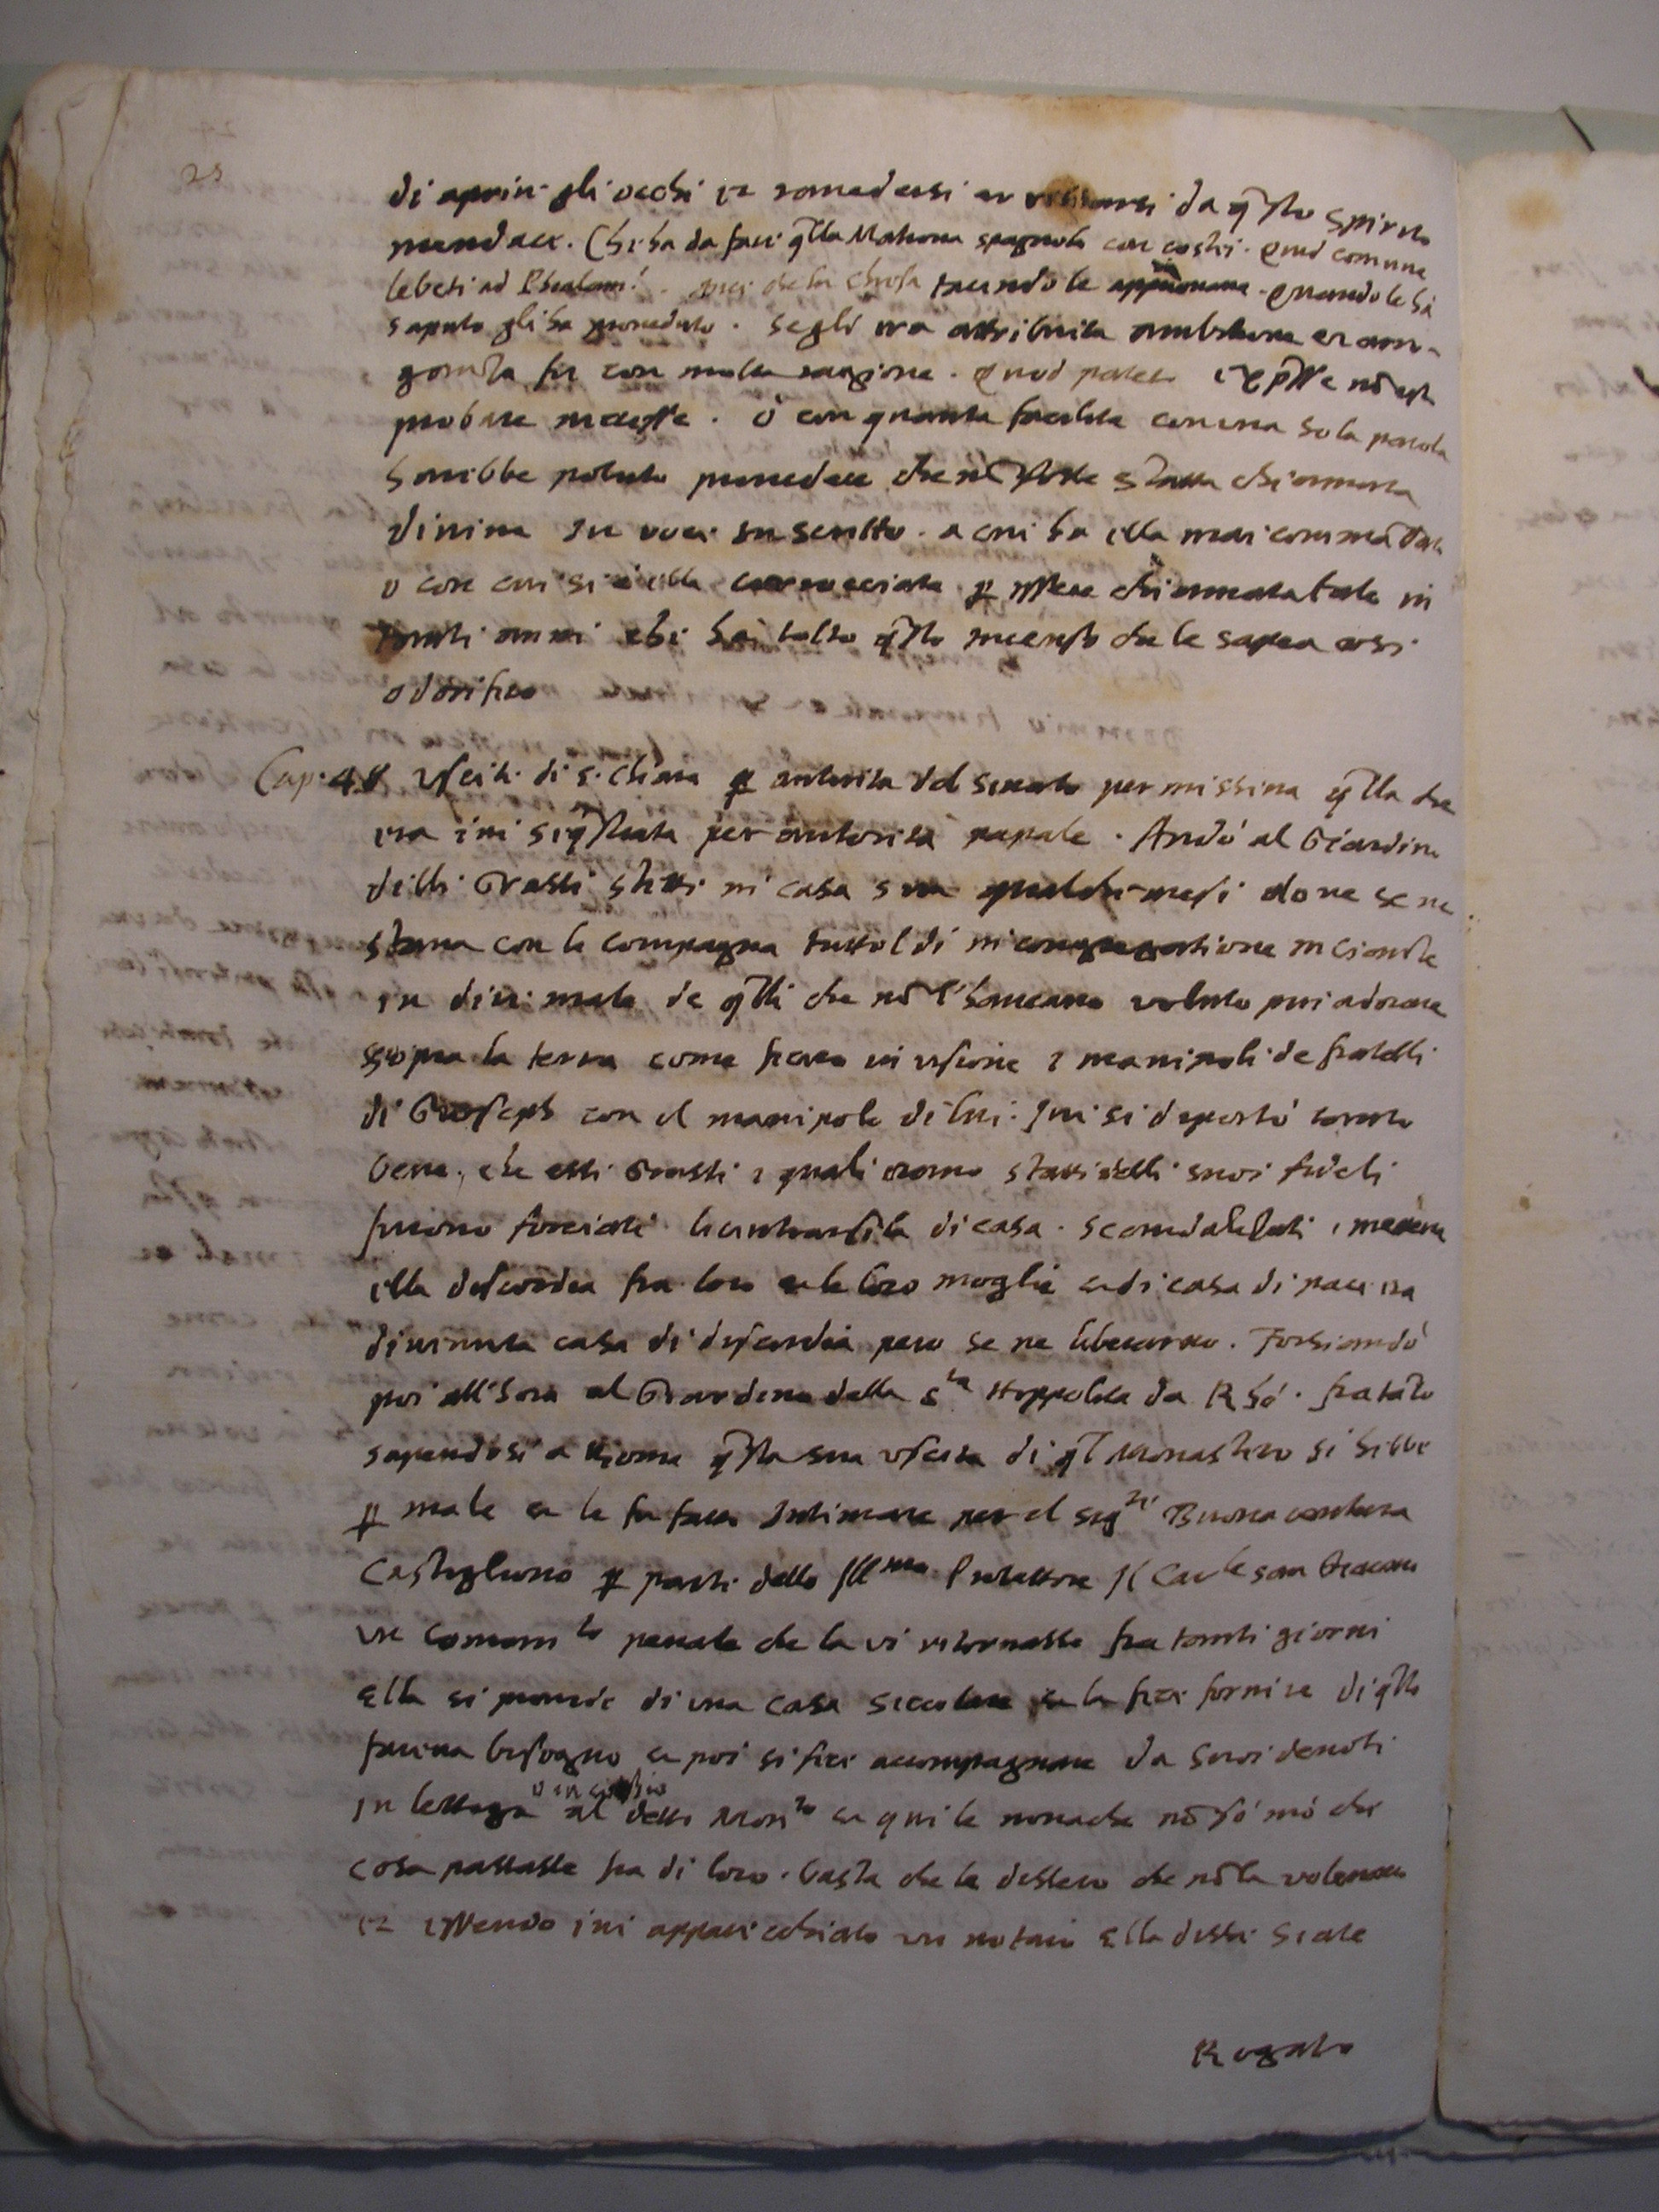 25
di aprir gli occhi et da q̃sto spirito
mendace. Chi ha da fare q̃lla Matrona spagnola con costei. Quid comune
lebeti ad tacendo le Quando le ha
saputo gli ha proveduto. Segli era attribuita ambitione et arro-
ganta fu con molta ragione. Quod patet exp̃sse nõ est
probare necesse. ò con quanta facilita con una sola parola
harebbe potuto provedere che nõ fosse stata chiamata
divina in voce in scritto. a cui ha ella mai commãdato
o con cui si è ella corrucciata ꝑ essere chiamata tale in
tanti anni chi hai tolto q̃sto incenso che le sapea cosi
odorifero
Cap. 48 Uscita di s. Chiara ꝑ autorita del senato permissiva q̃lla che
era ivi seq̃strata per autorita papale. Andò al Giardino
delli Grassi stette in casa sua qualche mesi dove se ne
stava con le compagna tutto l di in congregatione in cianfe
in dir male de q̃lli che nõ l'haveano voluto piu adorare
sopra la terra come fecero in visione i manipoli de fratelli
di Gioseph con el manipolo di lui. Ivi si deportò tanto
bene, che essi Grassi i quali erano stati delli suoi fideli
furono forciati licentiarsila di casa. scandalezati, metteva
ella discordia fra loro e le loro moglie e di casa di pace era
divenuta casa di discordia pero se ne liberarno. Forsi andò
poi all'hora al Giardino della s.ra Hippolita da Rhó. fra tãto
sapendosi a Roma q̃sta sua uscita di q̃l Monastero si hebbe
ꝑ male e le fu fatto intimare per el sig.re Buonaventura
Castiglione ꝑ parte dello Ill.mo Protettore Il Car.le san Giacomo
un Comam.to penale che la vi ritornasse fra tanti giorni
Ella si provide di una casa secolare e la fece fornire di q̃llo
faceva bisogno e poi si fece accompagnare da suoi devoti
in lettega o in cochio al detto Mon.ro e qui le monache nõ sò mó che
cosa passasse fra di loro. basta che le dissero che nõ la volevano
et essendo ivi apparecchiato un notaio Ella disse siate
Rogato